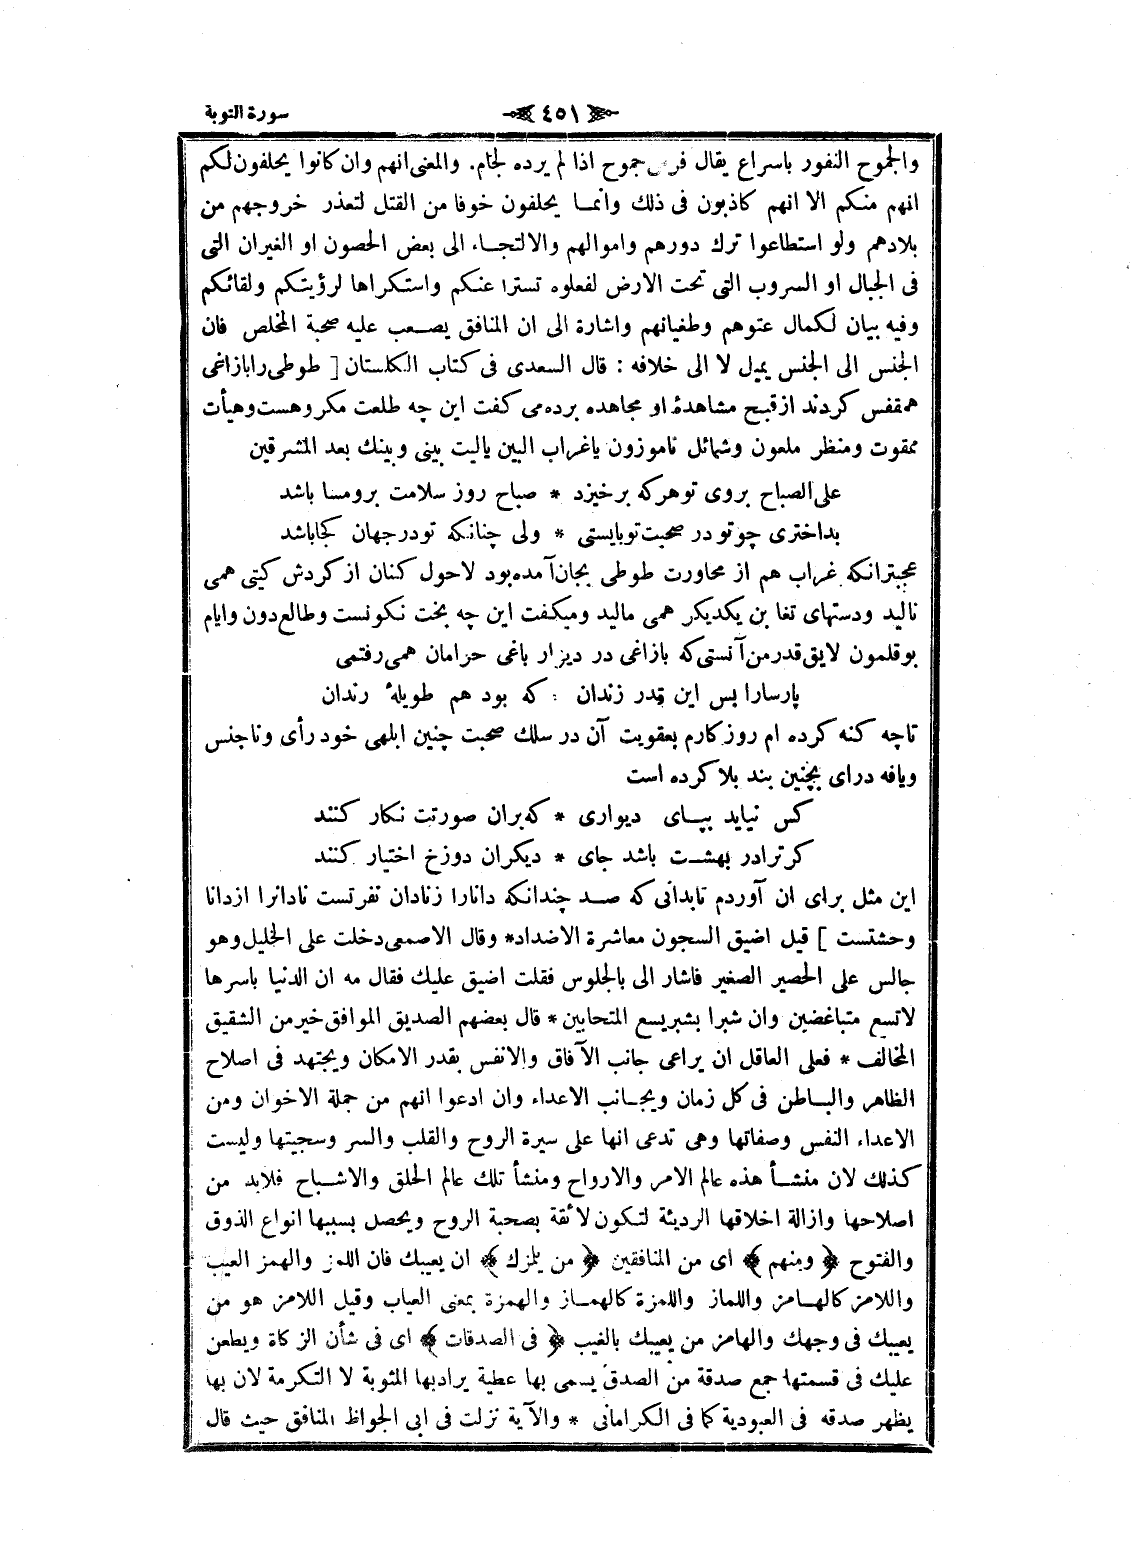 سورة التوبة
٤٥١
والجموح النفور باسراع يقال فرس جموح اذا لم يرده لجام. والمعنى انهم وان كانوا يحلفون لكم
انهم منكم الا انهم كاذبون فى ذلك وانمـا يحلفون خوفا من القتل لتعذر خروجهم من
بلادهم ولو استطاعوا ترك دورهم واموالهم والالتجـاء الى بعض الحصون او الغيران التى
فى الجبال او السروب التى تحت الارض لفعلوه تسترا عنكم واستكراها لرؤيتكم ولقائكم
وفيه بيان لكمال عتوهم وطغيانهم واشارة الى ان المنافق يصـعب عليه صحبة المخلص فان
الجنس الى الجنس يميل لا الى خلافه : قال السعدى فى كتاب الكلستان [ طوطى را بازاغى
همقفس كردند از قبح مشاهدۀ او مجاهده برده مى كفت اين چه طلعت مكروهست وهيأت
ممقوت ومنظر ملعون وشمائل ناموزون ياغراب البين ياليت بينى وبينك بعد المشرقين
على الصباح بروى توهركه برخيزد * صباح روز سلامت برو مسا باشد
بداخترى چوتو در صحبت تو بايستى * ولى چنانكه تو در جهان كجا باشد
عجبتر انكه غراب هم از محاورت طوطى بجان آمده بود لاحول كنان از كردش كيتى همى
ناليد ودستهاى تغا بن يكديكر همى ماليد وميكفت اين چه بخت نكونست وطالع دون وايام
بوقلمون لايق قدر من آنستى كه بازاغى در ديزار باغى حرامان همى رفتمى
پارسارا بس اين قدر زندان : كه بود هم طويلۀ رندان
تاچه كنه كرده ام روز كارم بعقوبت آن در سلك صحبت چنين ابلهى خود رأى وناجنس
ويافه دراى بچنين بند بلا كرده است
كس نيايد بپـاى ديوارى * كه بران صورتت نكار كنند
كر ترا در بهشت باشد جاى * ديكران دوزخ اختيار كنند
اين مثل براى ان آوردم تابدانى كه صـد چندانكه دانارا زنادان نفرتست نادانرا ازدانا
وحشتست ] قيل اضيق السجون معاشرة الاضداد* وقال الاصمعى دخلت على الخليل وهو
جالس على الحصير الصغير فاشار الى بالجلوس فقلت اضيق عليك فقال مه ان الدنيا باسرها
لاتسع متباغضين وان شبرا بشبر يسع المتحابين* قال بعضهم الصديق الموافق خير من الشقيق
المخالف * فعلى العاقل ان يراعى جانب الآفاق والانفس بقدر الامكان ويجتهد فى اصلاح
الظاهر والبـاطن فى كل زمان ويجـانب الاعداء وان ادعوا انهم من جملة الاخوان ومن
الاعداء النفس وصفاتها وهى تدعى انها على سيرة الروح والقلب والسر وسجيتها وليست
كذلك لان منشـأ هذه عالم الامر والارواح ومنشأ تلك عالم الخلق والاشـباح فلابد من
اصلاحها وازالة اخلاقها الرديئة لتكون لائقة بصحبة الروح ويحصل بسببها انواع الذوق
والفتوح ﴿ ومنهم ﴾ اى من المنافقين ﴿ من يلمزك ﴾ ان يعيبك فان اللمز والهمز العيب
واللامز كالهـامز واللماز واللمزة كالهمـاز والهمزة بمعنى العياب وقيل اللامز هو من
يعيبك فى وجهك والهامز من يعيبك بالغيب ﴿ فى الصدقات ﴾ اى فى شأن الزكاة ويطعن
عليك فى قسمتها جمع صدقة من الصدق يسمى بها عطية يراد بها المثوبة لا التكرمة لان بها
يظهر صدقه فى العبودية كما فى الكرامانى * والآية نزلت فى ابى الجواظ المنافق حيث قال